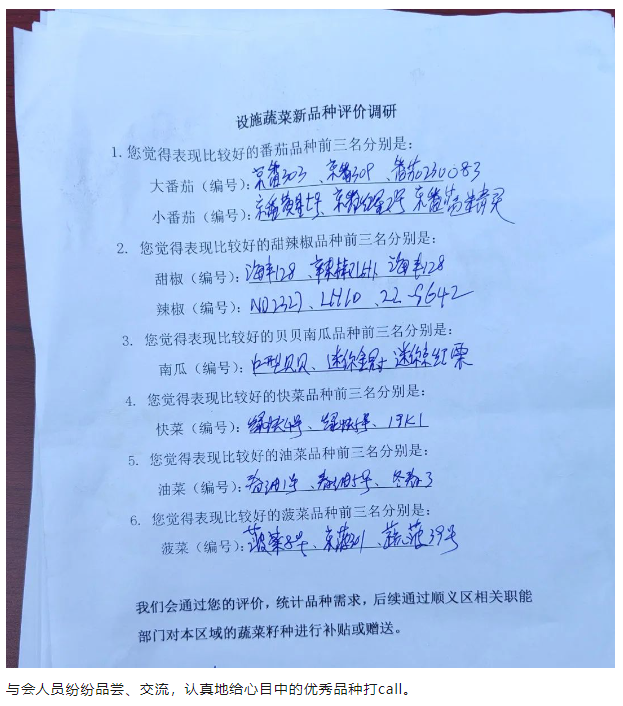 设施蔬菜新品种评价调研
1.您觉得表现比较好的番茄品种前三名分别是:
大番茄（编号）:京番303、京番309、番茄0230083
小番茄（编号）:京番黄星5号、京番红星2号
2. 您觉得表现比较好的甜辣椒品种前三名分别是:
甜椒（编号）:海丰128、辣椒、海丰128
辣椒（编号）:N02327、LH10、22-9642
3. 您觉得表现比较好的贝贝南瓜品种前三名分别是:
南瓜（编号）:巨型贝贝、迷你金冠、迷你红栗
4. 您觉得表现比较好的快菜品种前三名分别是:
快菜（编号）:绿快4号、19K1
5. 您觉得表现比较好的油菜品种前三名分别是:
油菜（编号）:春油1号、春油5号、冬春3
6. 您觉得表现比较好的菠菜品种前三名分别是:
菠菜（编号）:菠菜8号、京菠301、蔬菠39号
我们会通过您的评价，统计品种需求，后续通过顺义区相关职能
部门对本区域的蔬菜籽种进行补贴或赠送。
与会人员纷纷品尝、交流，认真地给心目中的优秀品种打call。